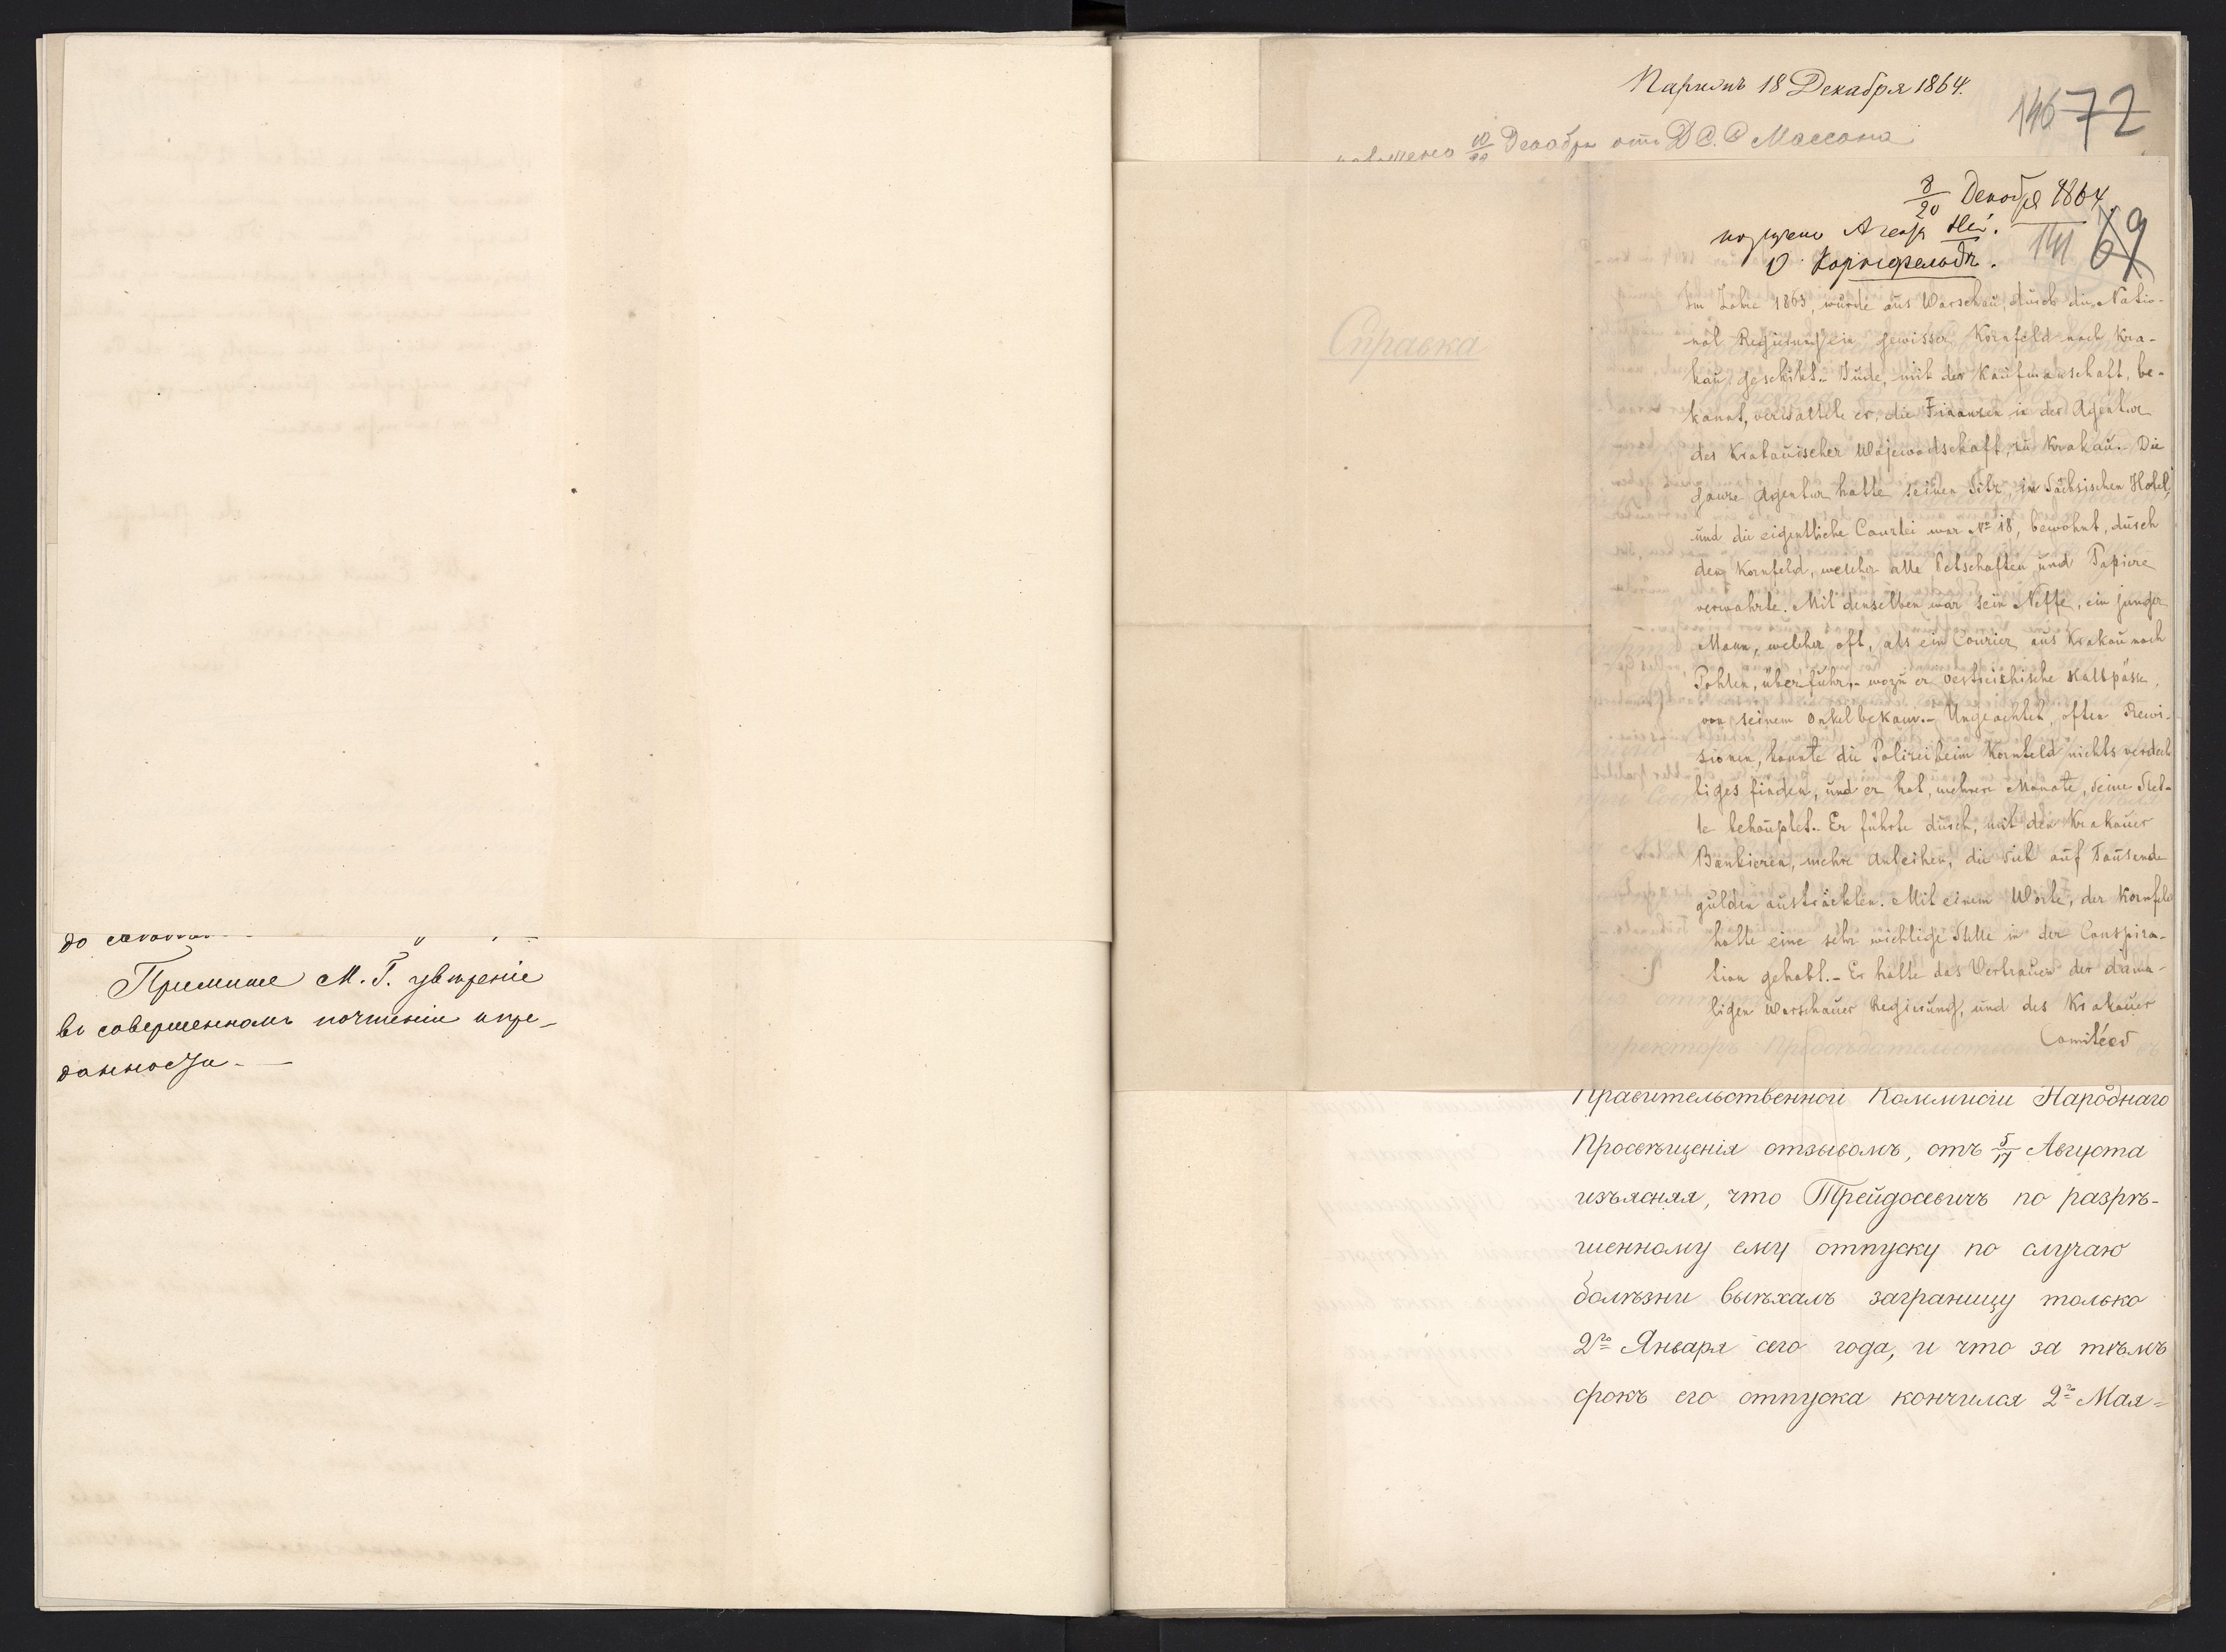 Примите М. Г. увѣреніе
въ совершенномъ почтеніи и пре-
данности. —
Парижъ 18 Декабря 1864.
146 72
10 Декабря отъ Д. С. С. Массона
8/20 Декабря 1864.
получено
О Корнфельдѣ.
141 69
Справка
Im Jahre 1863, wurde aus Warschau, durch die Natio-
nal Regierung ein gewisser Kornfeld nach Kra-
kau geschikt.- Jude, mit der Kaufmanschaft, be-
kannt, verwaltete er, die Finanzen in der Agentur
der Krakauischer Wojewodschaft, zu Krakau.- Die
ganze Agentur hatte seinen Sitz, im Sächsischen Hotel,
und die eigentliche Canzlei war № 18, bewohnt, dürch
den Kornfeld, welcher alle Petschaften und Papiere
verwahrte. Mit denselben war sein Neffe, ein junger
Mann, welcher oft, als ein Courier aus Krakau nach
Pohlen, überführ,- wozu er oestreichische Halbpässe,
von seinem Onkel bekam.- Ungeachtet, often Rewi-
sionen, konnte die Polizei beim Kornfeld nichts verdäch-
tiges finden, und er hat, mehrere Monate, seine Stel-
le behauptet.- Er führte dürch, mit den Krakauer
Bankieren, mehre Anleihen, die sich auf Tausende
gulden austräckten. Mit einem Worte, der Kornfeld
hatte eine sehr wichtige Stelle in der Conspira-
tion gehabt.- Er hatte das Vertrauen der dama-
ligen Warschauer Regierung, und des Krakauer
Comiteed
Правительственной Коммисіи Народнаго
Просвѣщенія отзывомъ, отъ 5/17 Августа
изъясняя, что Трейдосевичъ по разрѣ-
шенному ему отпуску по случаю
болѣзни выѣхалъ заграницу только
2го Января сего года, и что за тѣмъ
срокъ его отпуска кончился 2го Мая=